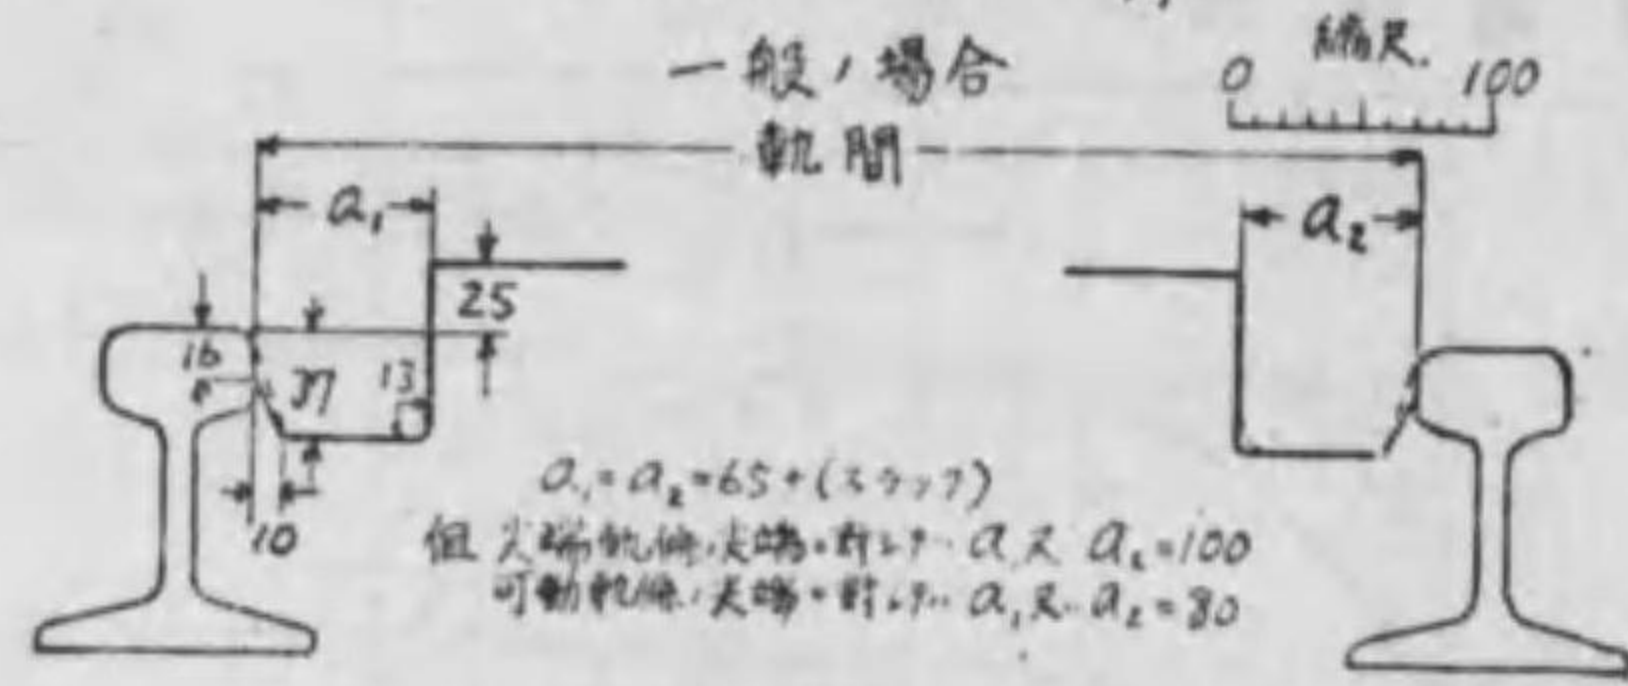 一般ノ場合
縮尺.
0 100
軌間
a₁
a₂
25
16
37
13
10
a₁=a₂=65+(スラック)
但 尖端軌條ノ尖端ニ對シテハ a₁又ハ a₂=100
可動軌條ノ尖端ニ對シテハ a₁又ハ a₂=80